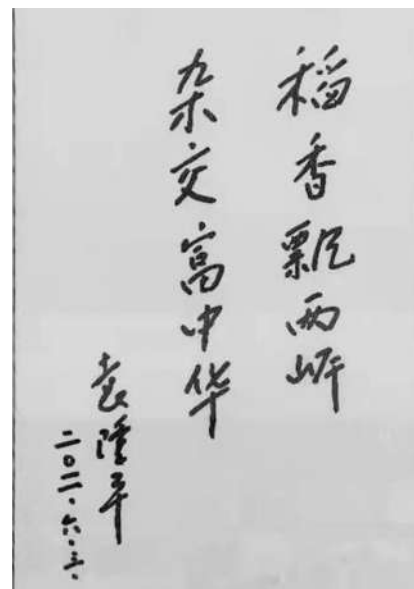 稻香飘两岸
杂交富中华
袁隆平
二〇一一.六.三.